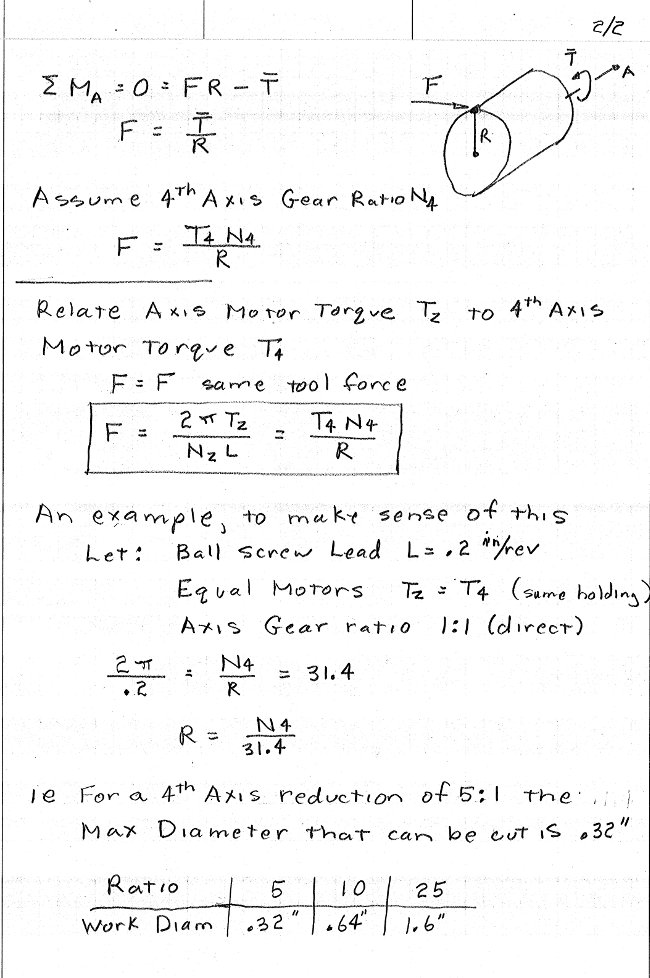 2/2
Σ M_A = 0 = FR - T̄
F = T̄/R
F
R
T̄
A
Assume 4th Axis Gear Ratio N4
F = T4 N4 / R
Relate Axis Motor Torque Tz to 4th Axis
Motor Torque T4
F = F same tool force
F = 2π Tz / Nz L = T4 N4 / R
An example, to make sense of this
Let: Ball screw Lead L = .2 in/rev
Equal Motors Tz = T4 (same holding)
Axis Gear ratio 1:1 (direct)
2π/.2 = N4/R = 31.4
R = N4/31.4
ie For a 4th Axis reduction of 5:1 the
Max Diameter that can be cut is .32"
Ratio 5 10 25
Work Diam .32" .64" 1.6"